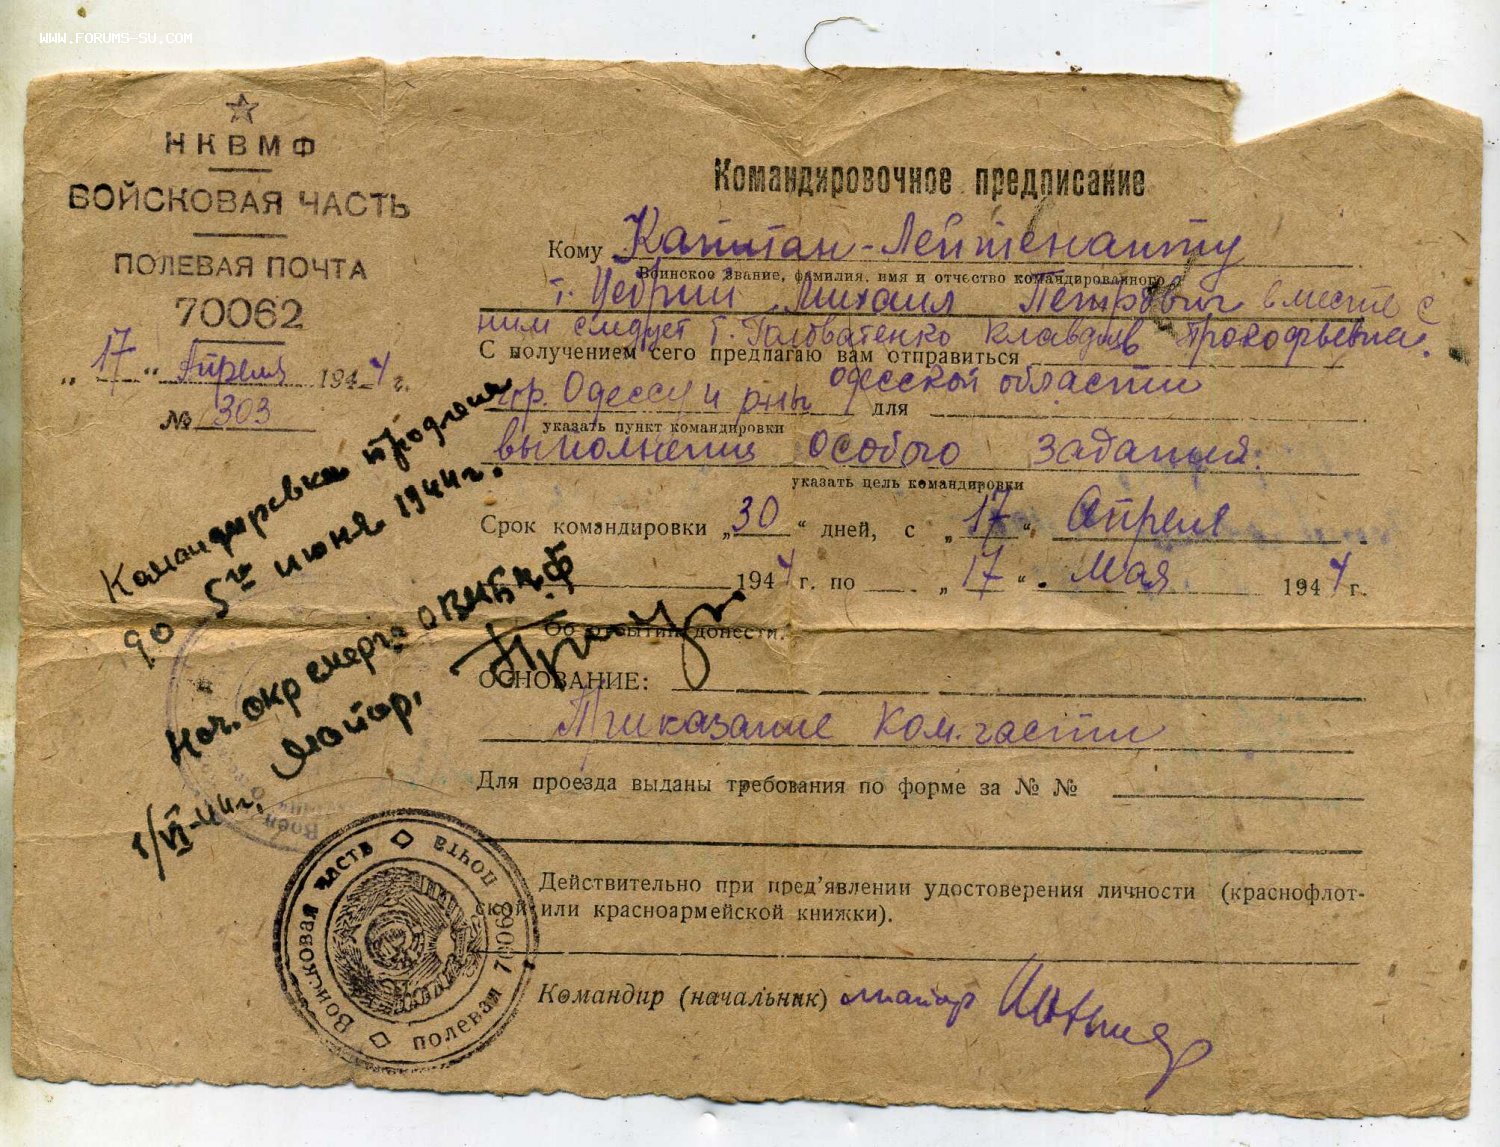 WWW.FORUMS-SU.COM
НКВМФ
ВОЙСКОВАЯ ЧАСТЬ
ПОЛЕВАЯ ПОЧТА
70062
„17“ Апреля 1944 г.
№ 303
Командировочное предписание
Кому Капитан-Лейтенанту
Воинское звание, фамилия, имя и отчество командированного
т. Цебрий Михаил Петрович вместе с
ним следует т. Головатенко Клавдия Прокофьевна.
С получением сего предлагаю вам отправиться
одесской области
гор. Одессу и р-ны для
указать пункт командировки
выполнения особого задания.
указать цель командировки
Срок командировки „30“ дней, с „17“ Апреля
1944 г. по „17“ Мая 1944 г.
Об отбытии донести.
ОСНОВАНИЕ:
Приказание Ком. части
Для проезда выданы требования по форме за № №
Действительно при пред'явлении удостоверения личности (краснофлот-
ской или красноармейской книжки).
Командир (начальник) майор
Командировка продлена
до 5го июня 1944 г.
Нач. окр смерш ОВМБ Ч.Ф
Майор.
1/VI-44г.
Войсковая часть полевая почта 70062